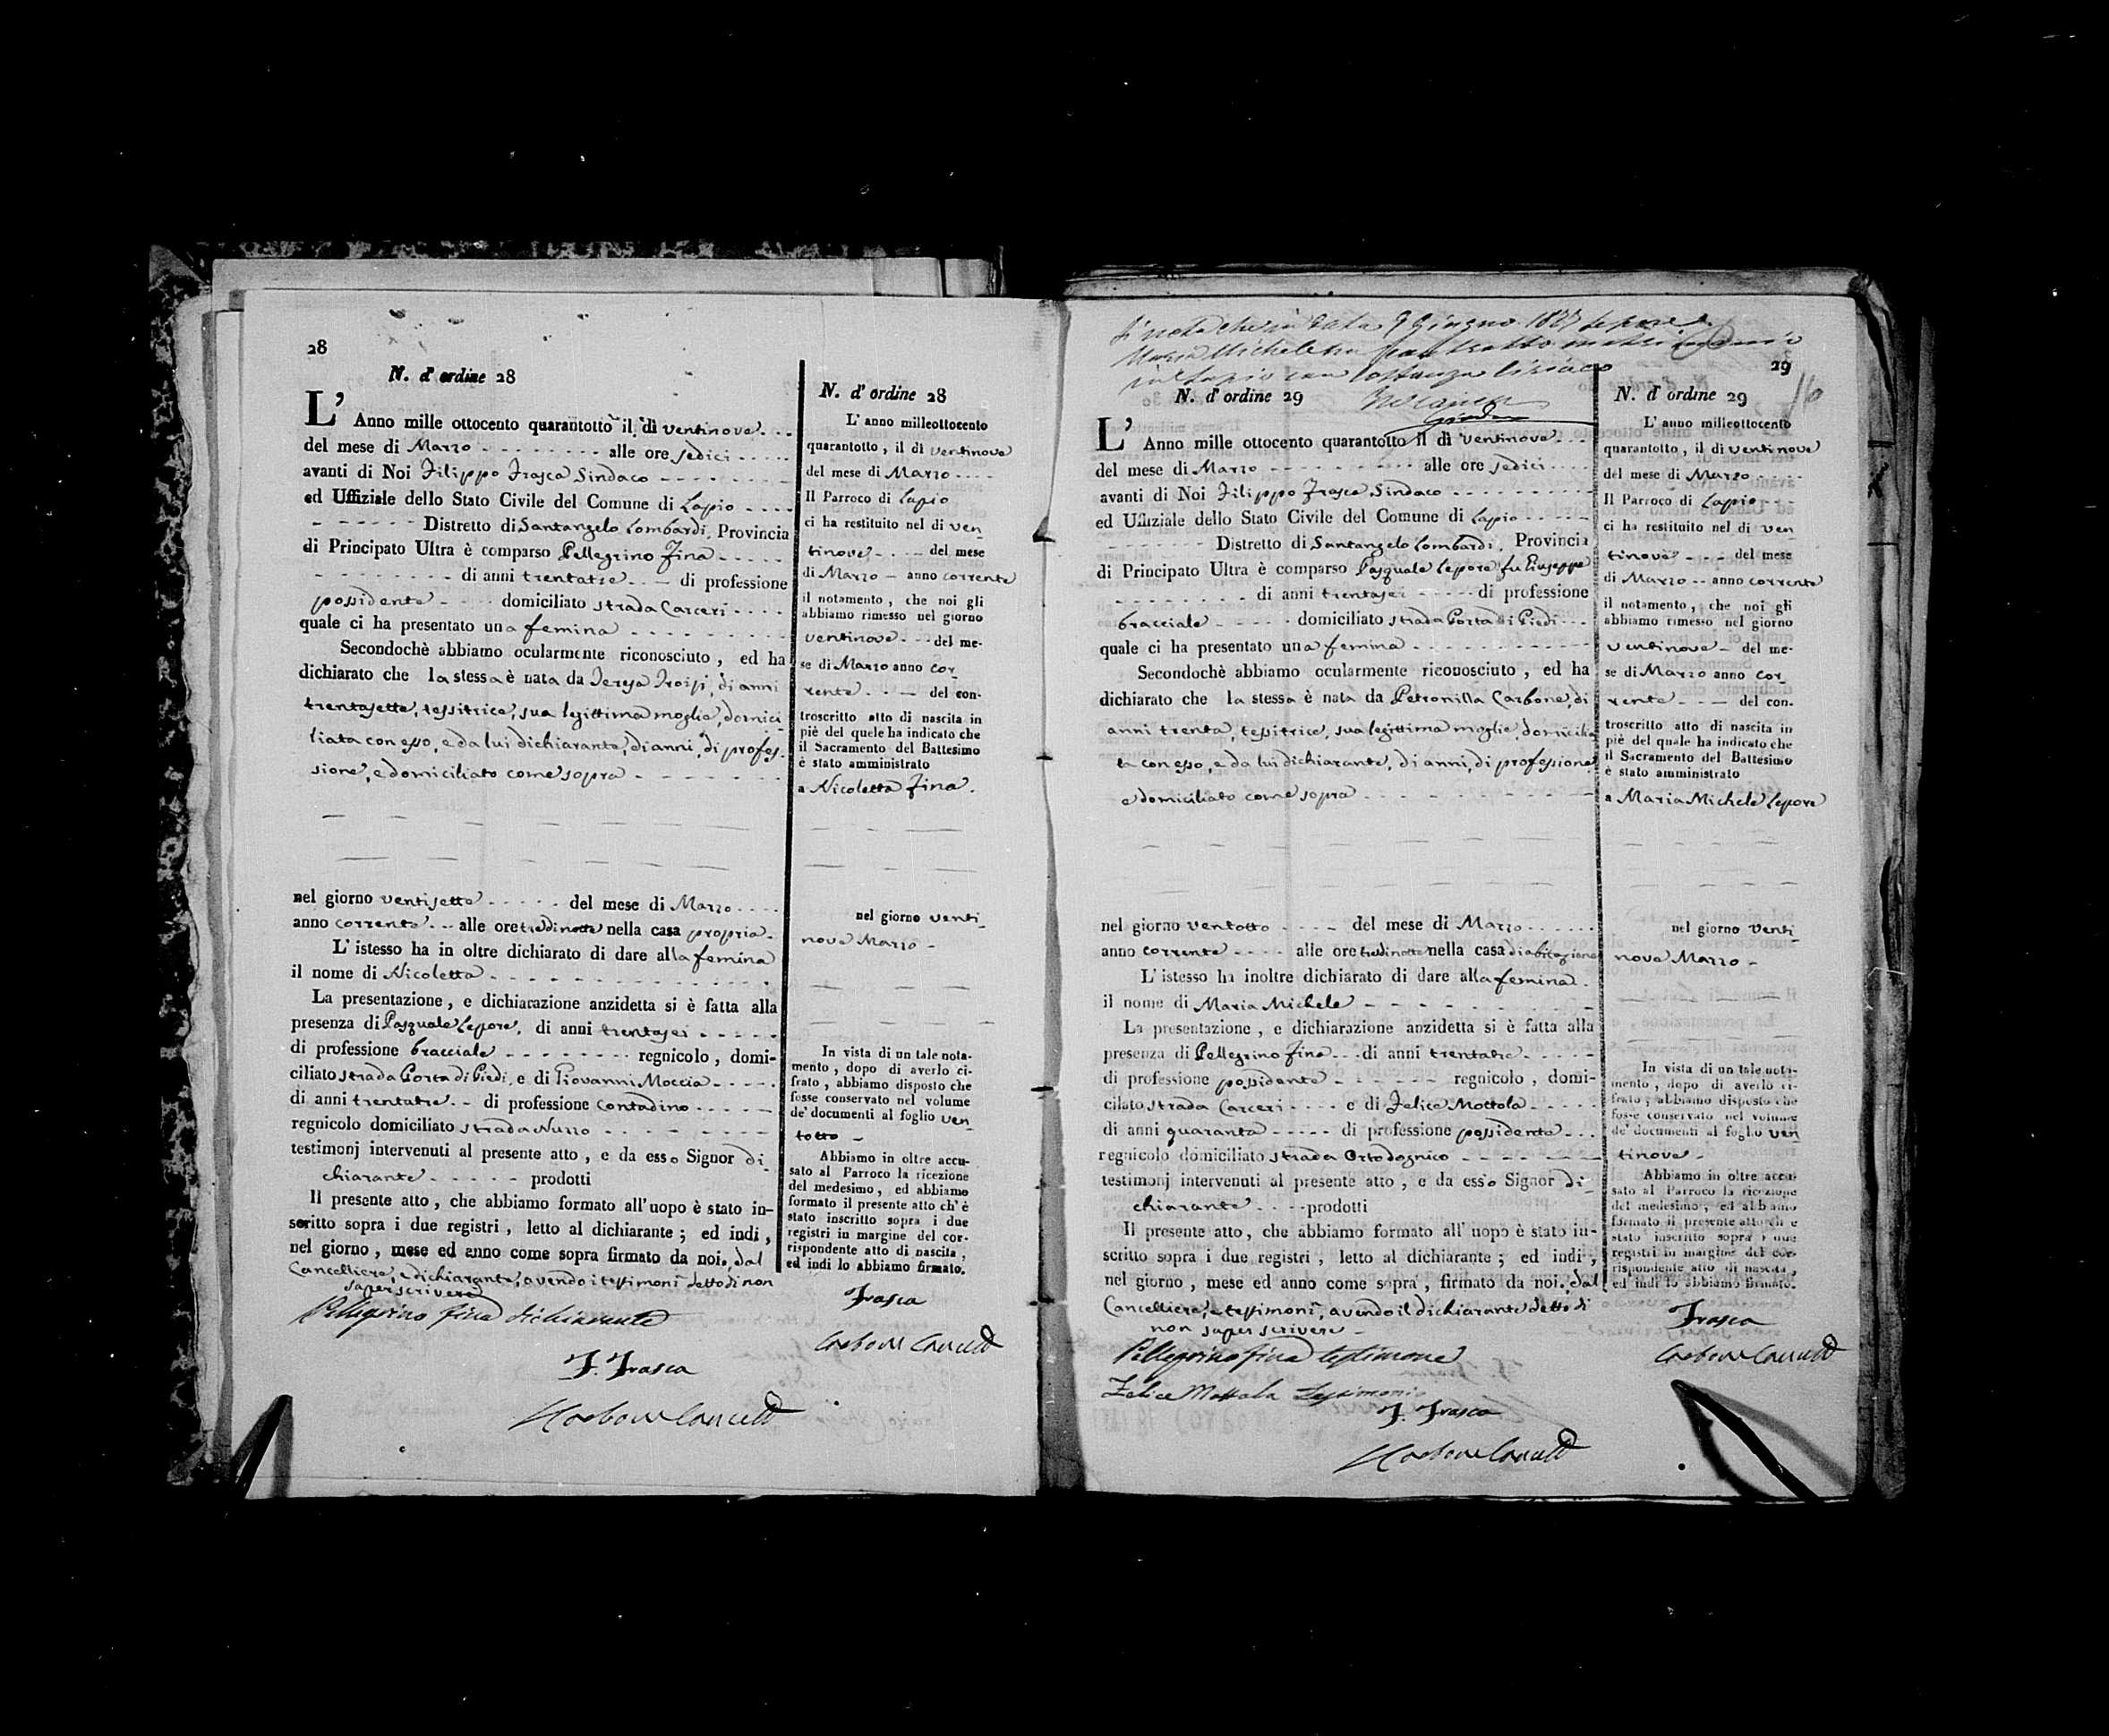 28
N. d' ordine 28
L' Anno mille ottocento quarantotto il dì ventinove
del mese di Marzo alle ore sedici
avanti di Noi Filippo Frasca Sindaco
ed Uffiziale dello Stato Civile del Comune di Lapio
Distretto di Santangelo Lombardi, Provincia
di Principato Ultra è comparso Pellegrino Fina
di anni trentatre di professione
possidente domiciliato strada Carceri
quale ci ha presentato una femina
Secondochè abbiamo ocularmente riconosciuto, ed ha
dichiarato che la stessa è nata da Teresa Troisi, di anni
trentasette, tessitrice, sua legittima moglie, domici
liata con esso, e da lui dichiarante, di anni, di profes-
sione, e domiciliato come sopra
nel giorno ventisette del mese di Marzo
anno corrente alle ore tredici notte nella casa propria
L' istesso ha in oltre dichiarato di dare alla femina
il nome di Nicoletta
La presentazione, e dichiarazione anzidetta si è fatta alla
presenza di Pasquale Lepore, di anni trentasei
di professione bracciale regnicolo, domi-
ciliato strada Porta di Piedi, e di Giovanni Moccia
di anni trentatre di professione contadino
regnicolo domiciliato strada Nuzzo
testimonj intervenuti al presente atto, e da esso Signor di
chiarante prodotti
Il presente atto, che abbiamo formato all'uopo è stato in-
scritto sopra i due registri, letto al dichiarante; ed indi,
nel giorno, mese ed anno come sopra firmato da noi, dal
Cancelliere, e dichiarante, avendo i testimonî detto di non
saper scrivere
Pellegrino Fina dichiarante
F. Frasca
Carbone Cancell
N. d' ordine 28
L' anno milleottocento
quarantotto, il dì ventinove
del mese di Marzo
Il Parroco di Lapio
ci ha restituito nel dì ven
tinove del mese
di Marzo anno corrente
il notamento, che noi gli
abbiamo rimesso nel giorno
ventinove del me-
se di Marzo anno cor
rente del con-
troscritto atto di nascita in
piè del quele ha indicato che
il Sacramento del Battesimo
è stato amministrato
a Nicoletta Fina.
nel giorno venti
nove Marzo
In vista di un tale nota-
mento, dopo di averlo ci-
frato, abbiamo disposto che
fosse conservato nel volume
de' documenti al foglio ven
totto
Abbiamo in oltre accu-
sato al Parroco la ricezione
del medesimo, ed abbiamo
formato il presente atto ch' è
stato inscritto sopra i due
registri in margine del cor-
rispondente atto di nascita,
ed indi lo abbiamo firmato.
Frasca
Carbone Cancell
Si nota che in data 9 Giugno Lepore
Maria Michela ha contratto matrimonio
in Lapio con Costanzo Ciriaco
29
N. d' ordine 29
L' Anno mille ottocento quarantotto il dì ventinove
del mese di Marzo alle ore sedici
avanti di Noi Filippo Frasca Sindaco
ed Uffiziale dello Stato Civile del Comune di Lapio
Distretto di Santangelo Lombardi, Provincia
di Principato Ultra è comparso Pasquale Lepore fu Giuseppe
di anni trentasei di professione
bracciale domiciliato strada Porta di Piedi
quale ci ha presentato una femina
Secondochè abbiamo ocularmente riconosciuto, ed ha
dichiarato che la stessa è nata da Petronilla Carbone, di
anni trenta, tessitrice, sua legittima moglie, domicilia
ta con esso, e da lui dichiarante, di anni, di professione
e domiciliato come sopra
nel giorno ventotto del mese di Marzo
anno corrente alle ore tredici notte nella casa di abitazione
L' istesso ha inoltre dichiarato di dare alla femina
il nome di Maria Michele
La presentazione, e dichiarazione anzidetta si è fatta alla
presenza di Pellegrino Fina di anni trentatre
di professione possidente regnicolo, domi-
cilato strada Carceri e di Felice Mottola
di anni quaranta di professione possidente
regnicolo domiciliato strada Ortodognico
testimonj intervenuti al presente atto, e da esso Signor di-
chiarante prodotti
Il presente atto, che abbiamo formato all' uopo è stato in-
scritto sopra i due registri, letto al dichiarante; ed indi,
nel giorno, mese ed anno come sopra, firmato da noi, dal
Cancelliere, e testimonî, avendo il dichiarante detto di
non saper scrivere
Pellegrino Fina testimone
Felice Mottola Testimonio
F. Frasca
Carbone Cancell
N. d' ordine 29
L' anno milleottocento
quarantotto, il dì ventinove
del mese di Marzo
Il Parroco di Lapio
ci ha restituito nel dì ven
tinove del mese
di Marzo anno corrente
il notamento, che noi gli
abbiamo rimesso nel giorno
ventinove del me-
se di Marzo anno cor
rente del con-
troscritto atto di nascita in
piè del quale ha indicato che
il Sacramento del Battesimo
è stato amministrato
a Maria Michele Lepore
nel giorno venti
nove Marzo
In vista di un tale nota-
mento, dopo di averlo ci-
frato, abbiamo disposto che
fosse conservato nel volume
de' documenti al foglio ven
tinove
Abbiamo in oltre accu-
sato al Parroco la ricezione
del medesimo, ed abbiamo
formato il presente atto ch' è
stato inscritto sopra i due
registri in margine del cor-
rispondente atto di nascita,
ed indi lo abbiamo firmato.
Frasca
Carbone Cancell